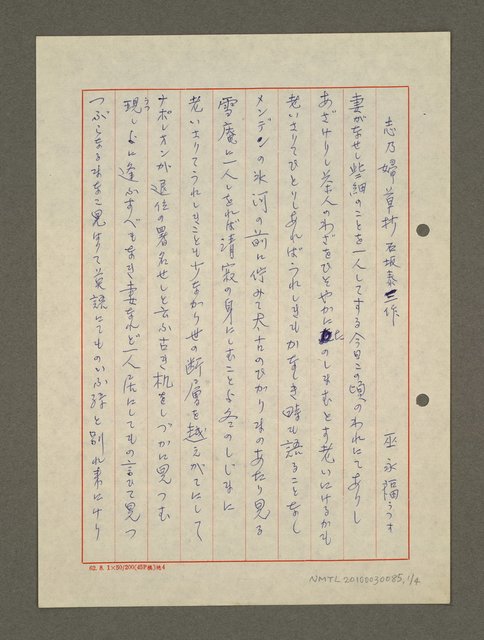 志乃婦草抄 石坂泰三作 巫永福うつす
妻がなせし些細のことを一人してする今日この頃のわれにてありし
あざけりし茶人のわざをひそやかにたのしまむとす老いにけるかも
老いさりてひとりしあればうれしきもかなしき時も語ることなし
メンデンの氷河の前に佇みて太古のひかりまのあたり見る
雪庵に一人しをれば清寂の身にしむことよ冬のしじまに
老いさりてうれしきことも少なかり世の断層を越えがてにして
ナポレオンが退位の署名せしと云ふ古き机をしづかに見つむ
現し世に逢ふすべもなき妻なれど一人居にしてもの言ひて見つ
つぶらなるまなこ見はりて英語にてものいふ孫と別れ来にけり
62. 8. 1×50/200(45P横)地4
NMTL20160030085, 1/4